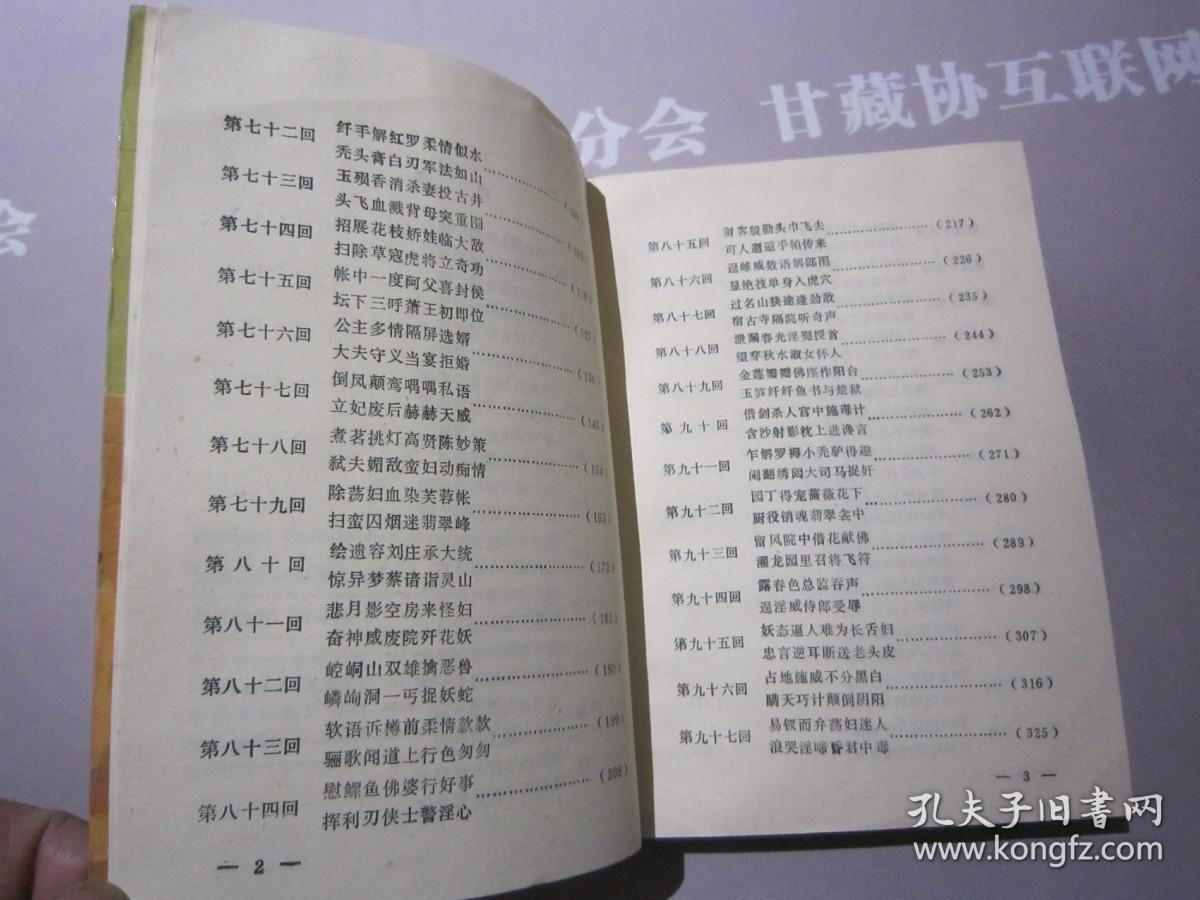 分会 甘藏协互联网
会
第七十二回 纤手解红罗柔情似水
秃头膏白刃军法如山
第七十三回 玉殒香消杀妻投古井
头飞血溅背母突重围
第七十四回 招展花枝娇娃临大敌
扫除草寇虎将立奇功
第七十五回 帐中一度阿父喜封侯
坛下三呼萧王初即位
第七十六回 公主多情隔屏选婿
大夫守义当宴拒婚
第七十七回 倒凤颠鸾喁喁私语 (145)
立妃废后赫赫天威
第七十八回 煮茗挑灯高贤陈妙策 (154)
弑夫媚敌蛮妇动痴情
第七十九回 除荡妇血染芙蓉帐 (163)
扫蛮囚烟迷翡翠峰
第八十回 绘遗容刘庄承大统 (172)
惊异梦蔡谙诣灵山
第八十一回 悲月影空房来怪妇 (181)
奋神威废院歼花妖
第八十二回 崆峒山双雄擒恶兽 (190)
嶙峋洞一丐捉妖蛇
第八十三回 软语诉樽前柔情款款 (199)
骊歌闻道上行色匆匆
第八十四回 慰鳏鱼佛婆行好事 (208)
挥利刃侠士警淫心
— 2 —
第八十五回 客殷勤头巾飞去 (217)
可人邂逅手帕传来
第八十六回 逞雌威数语解郎围 (226)
显绝技单身入虎穴
第八十七回 过名山狭途逢劲敌 (235)
宿古寺隔院听奇声
第八十八回 泄漏春光淫鬼授首 (244)
望穿秋水淑女怀人
第八十九回 金莲瓣瓣佛座作阳台 (253)
玉笋纤纤鱼书与楚狱
第九十回 借剑杀人宫中施毒计 (262)
含沙射影枕上进谗言
第九十一回 乍解罗襦小秃驴得趣 (271)
闹翻绣闼大司马捉奸
第九十二回 园丁得宠蔷薇花下 (280)
厨役销魂翡翠衾中
第九十三回 留风院中借花献佛 (289)
濯龙园里召将飞符
第九十四回 露春色总监吞声 (298)
逞淫威侍郎受辱
第九十五回 妖态逼人难为长舌妇 (307)
忠言逆耳断送老头皮
第九十六回 占地施威不分黑白 (316)
瞒天巧计颠倒阴阳
第九十七回 易钗而弁荡妇迷人 (325)
浪哭淫啼昏君中毒
— 3 —
孔夫子旧书网
www.kongfz.com